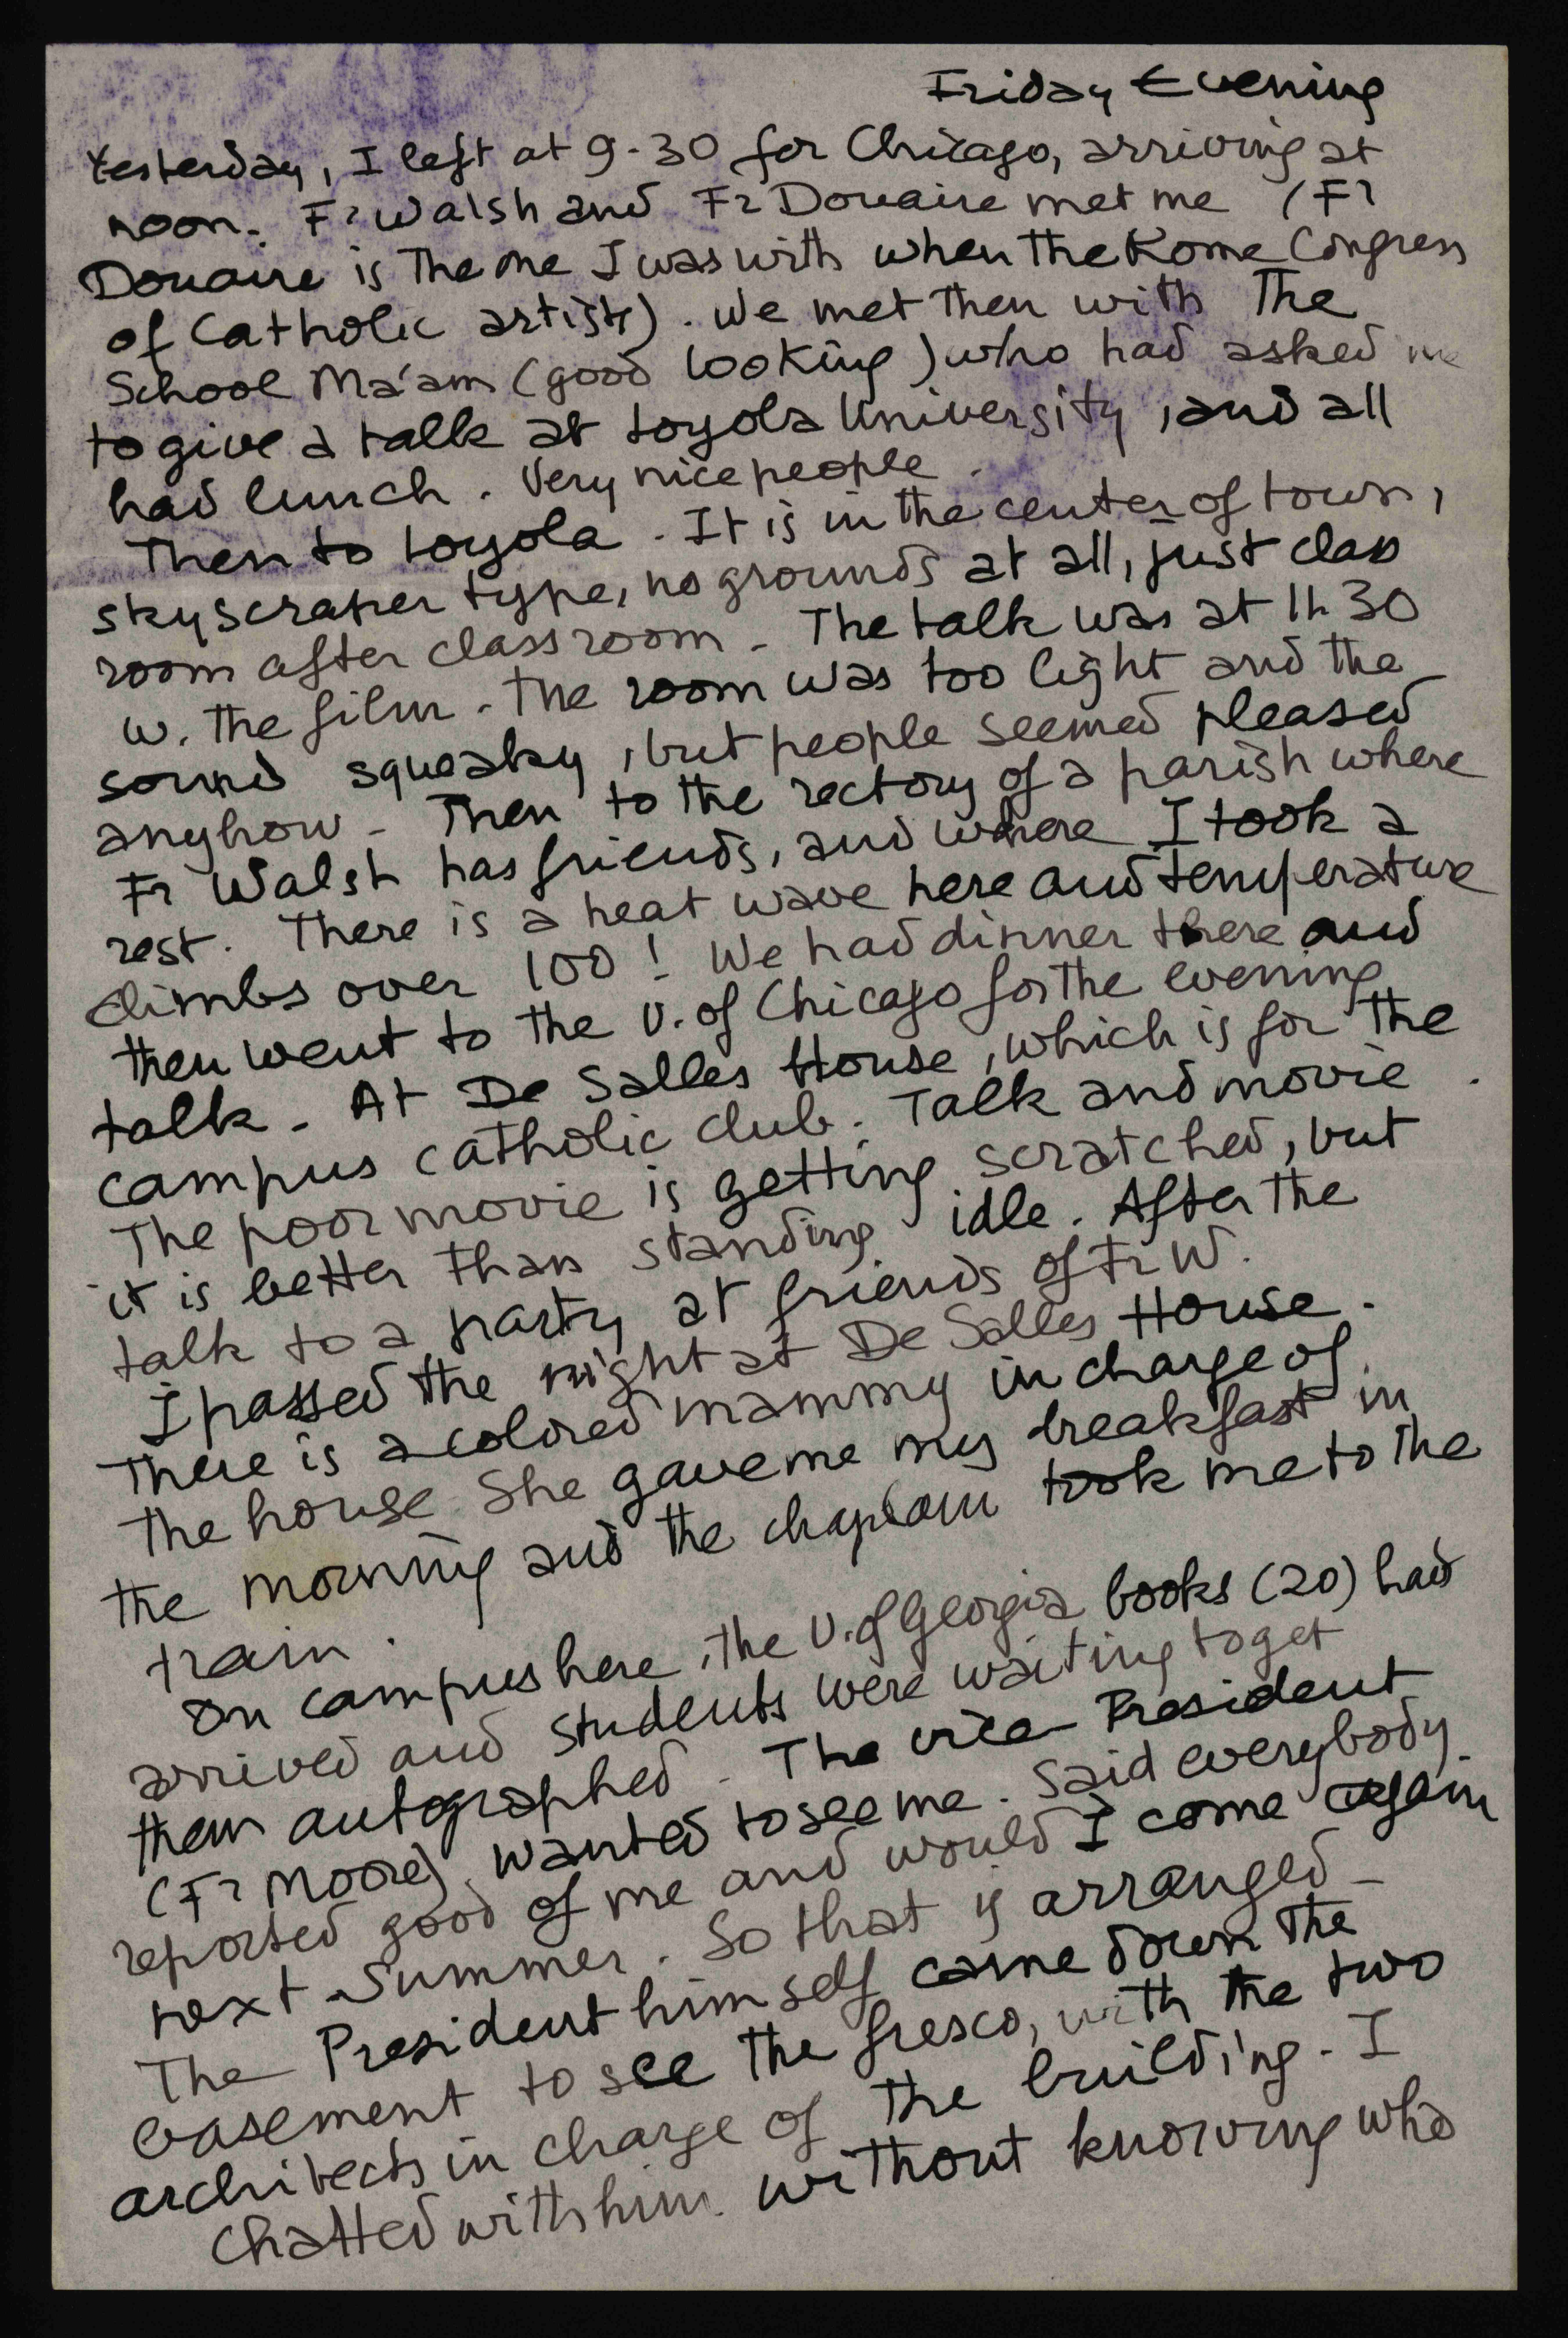 Friday Evening
Yesterday, I left at 9-30 for Chicago, arriving at
noon. Fr Walsh and Fr Douaire met me (Fr
Douaire is the one I was with when the Rome Congress
of Catholic artists). We met then with The
School Ma'am (good looking) who had asked me
to give a talk at Loyola University, and all
had lunch. Very nice people.
Then to Loyola. It is in the center of town,
skyscraper type, no grounds at all, just class
room after class room. The talk was at 1h30
w. the film. The room was too light and the
sound squeaky, but people seemed pleased
anyhow. Then to the rectory of a parish where
Fr Walsh has friends, and where I took a
rest. There is a heat wave here and temperature
climbs over 100! We had dinner there and
then went to the U. of Chicago for the evening
talk. At De Salles House, which is for the
campus catholic club. Talk and movie.
The poor movie is getting scratched, but
it is better than standing idle. After the
talk to a party at friends of Fr W.
I passed the night at De Salles House.
There is a colored mammy in charge of
the house. She gave me my breakfast in
the morning and the chaplain took me to the
train.
On campus here, the U. of Georgia books (20) had
arrived and students were waiting to get
them autographed. The vice-President
(Fr Moore) wanted to see me. Said everybody
reported good of me and would I come again
next Summer. So that is arranged.
The President himself came down the
basement to see the fresco, with the two
architects in charge of the building. I
chatted with him without knowing who